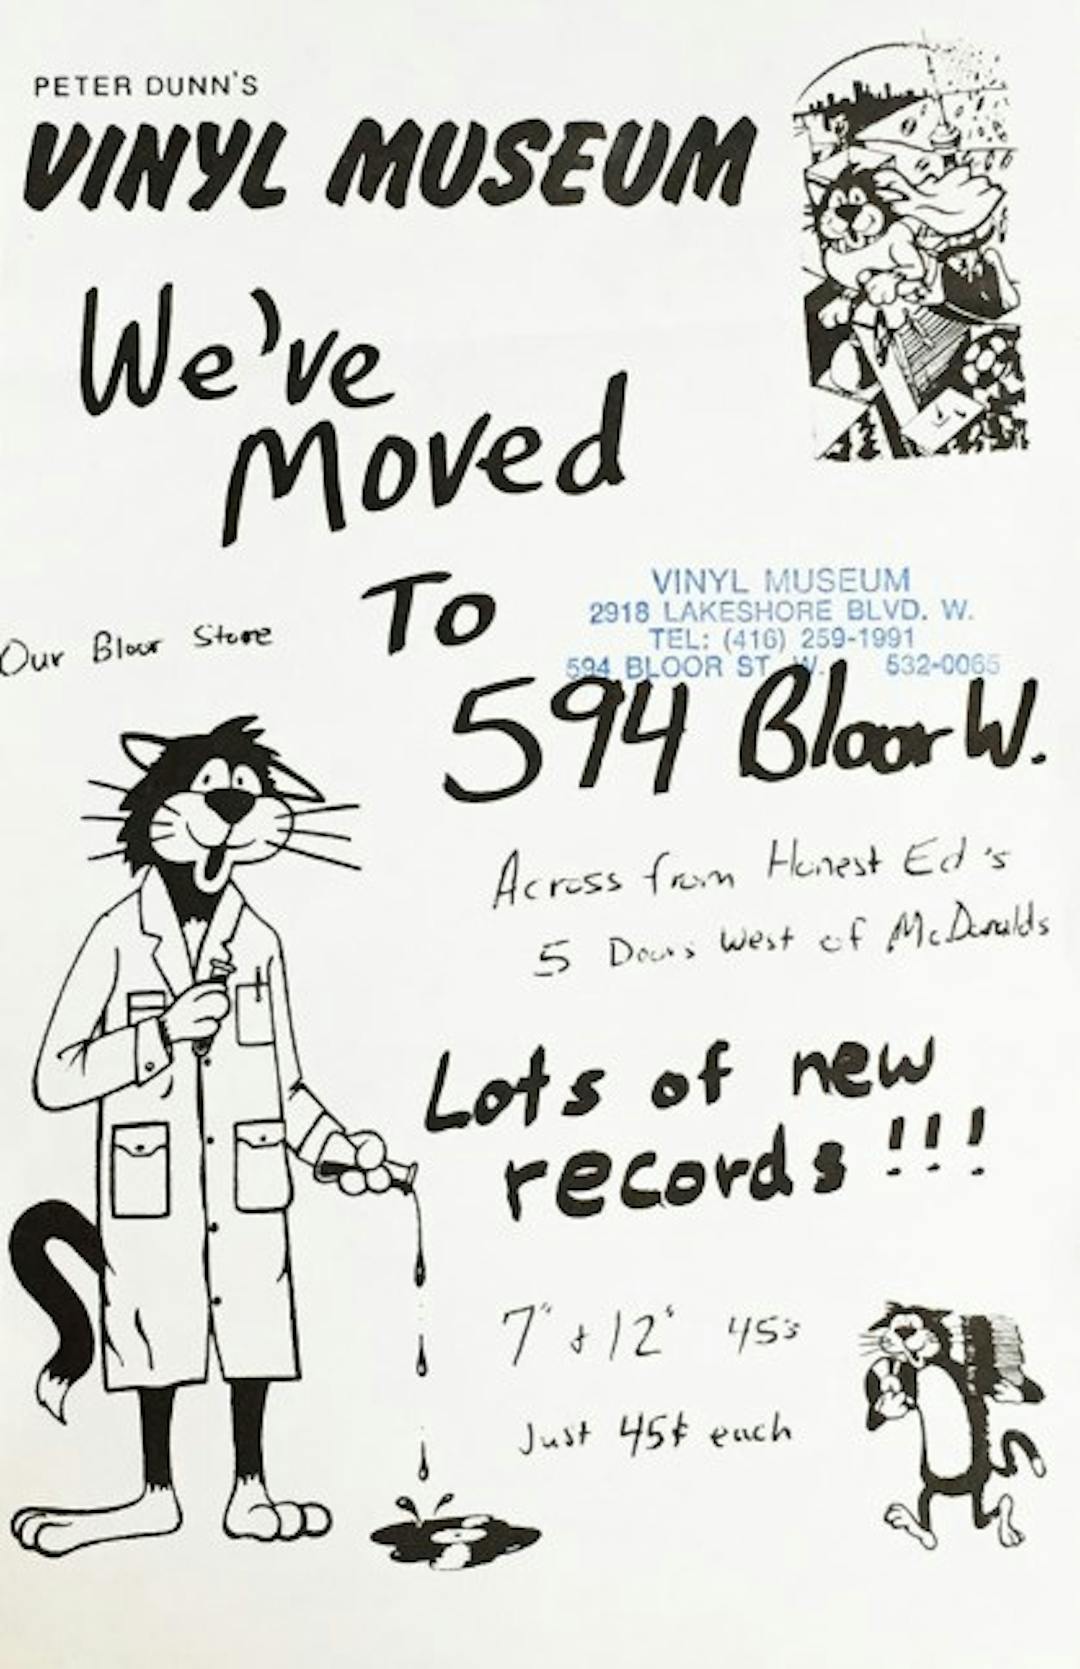 PETER DUNN'S
VINYL MUSEUM
We've
Moved
To
Our Bloor Store
VINYL MUSEUM
2918 LAKESHORE BLVD. W.
TEL: (416) 259-1991
594 BLOOR ST. W. 532-0065
594 Bloor W.
Across from Honest Ed's
5 Doors West of McDonalds
Lots of new
records!!!
7" & 12" 45's
Just 45¢ each